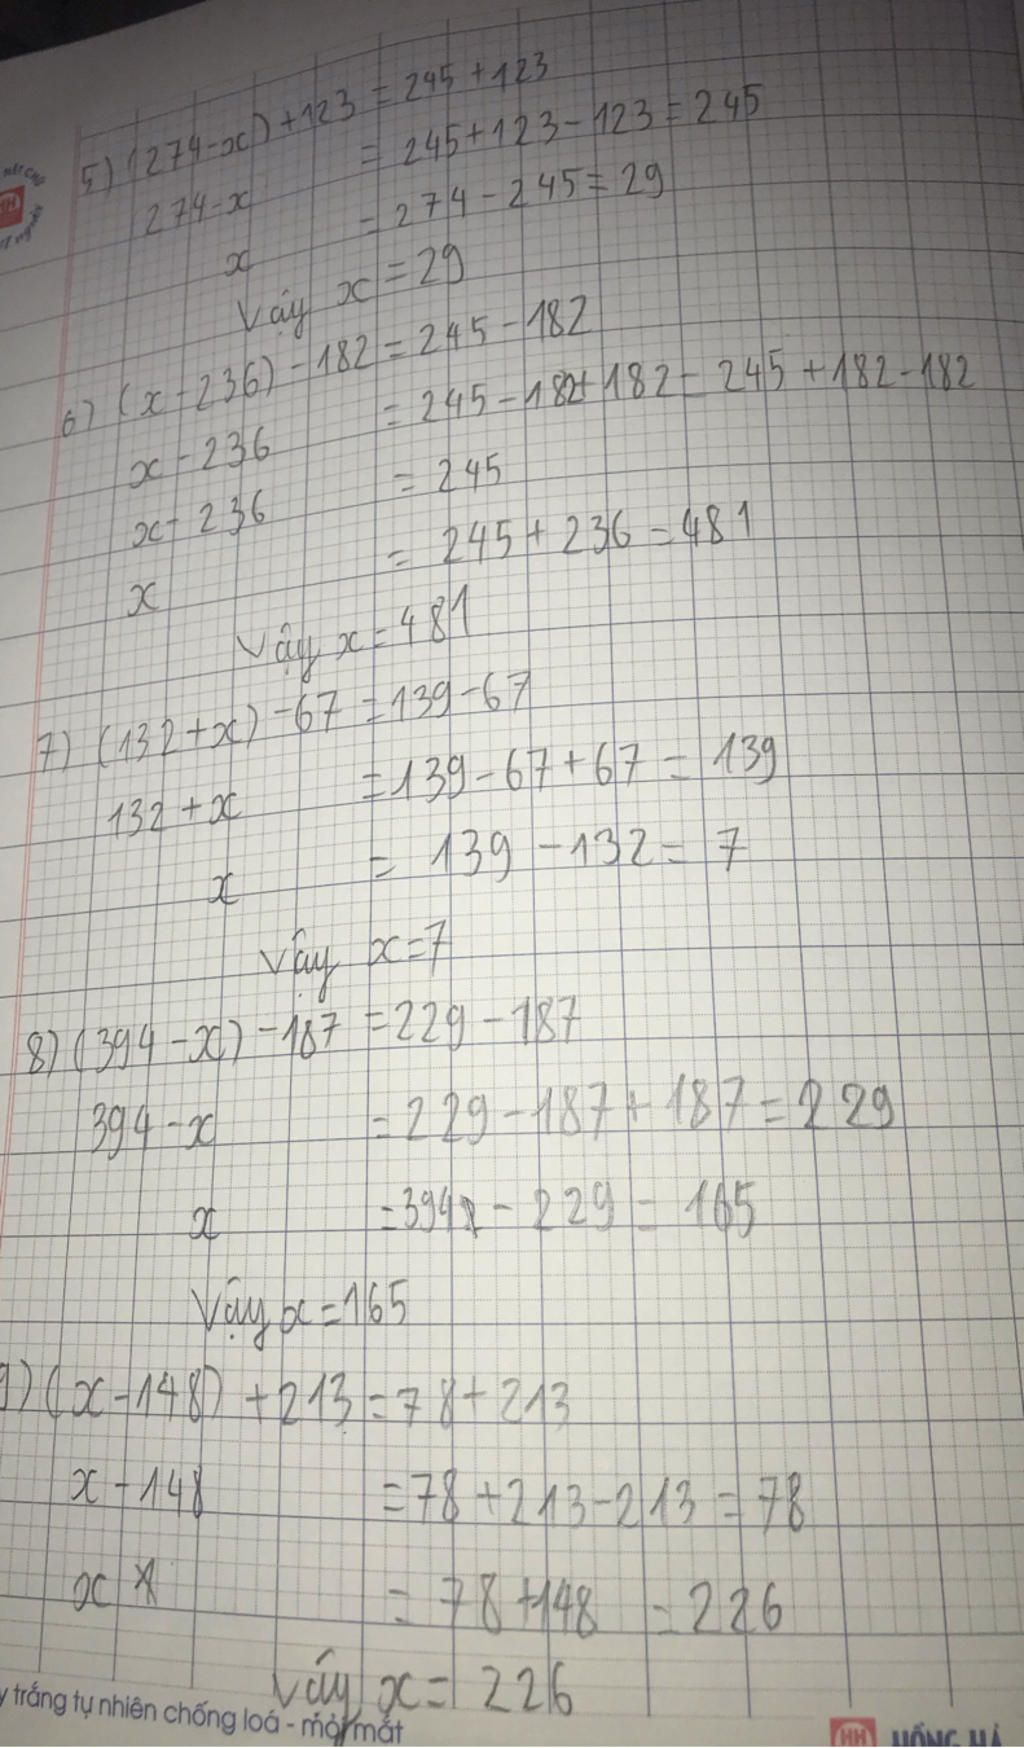 5) (274-x) + 123 = 245 + 123
274-x = 245+123-123 = 245
x = 274 - 245 = 29
Vậy x = 29
6) (x - 236) - 182 = 245 - 182
x - 236 = 245 - 182 + 182 = 245 + 182 - 182
x - 236 = 245
x = 245 + 236 = 481
Vậy x = 481
7) (132+x) - 67 = 139 - 67
132 + x = 139 - 67 + 67 = 139
x = 139 - 132 = 7
Vậy x = 7
8) (394 - x) - 187 = 229 - 187
394 - x = 229 - 187 + 187 = 229
x = 394 - 229 = 165
Vậy x = 165
9) (x - 148) + 213 = 78 + 213
x - 148 = 78 + 213 - 213 = 78
x = 78 + 148 = 226
Vậy x = 226
trắng tự nhiên chống loá - mỏi mắt
HH HỒNG HÀ